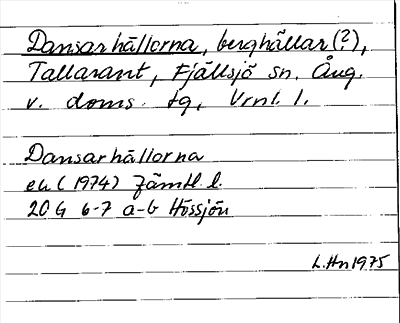 Dansarhällorna, berghällar(?),
Tallarant, Fjällsjö sn. Ång.
v. doms. tg, Vrnl. l.
Dansarhällorna
ek (1974) Jämtl. l.
20 G 6-7 a-b Hössjön
L.Hn 1975